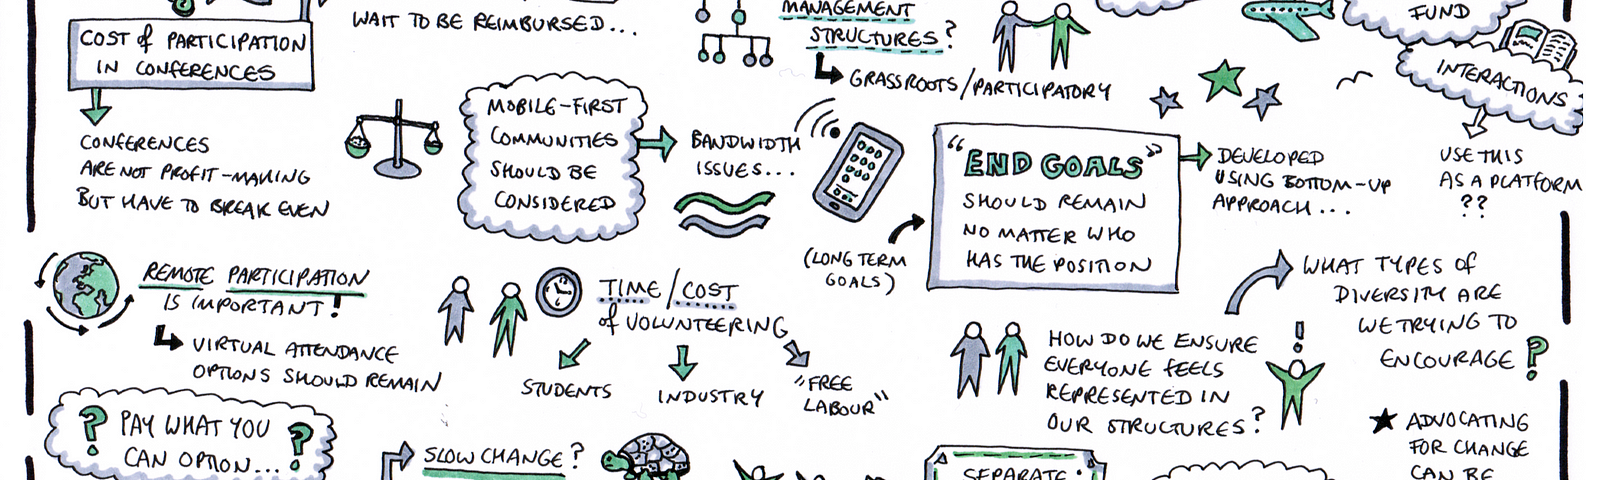 WAIT TO BE REIMBURSED...
COST of PARTICIPATION
IN CONFERENCES
CONFERENCES
ARE NOT PROFIT-MAKING
BUT HAVE TO BREAK EVEN
MANAGEMENT
STRUCTURES?
GRASSROOTS/PARTICIPATORY
FUND
INTERACTIONS
USE THIS
AS A PLATFORM
??
MOBILE-FIRST
COMMUNITIES
SHOULD BE
CONSIDERED
BANDWIDTH
ISSUES...
"END GOALS"
SHOULD REMAIN
NO MATTER WHO
HAS THE POSITION
(LONG TERM
GOALS)
DEVELOPED
USING BOTTOM-UP
APPROACH...
REMOTE PARTICIPATION
IS IMPORTANT!
VIRTUAL ATTENDANCE
OPTIONS SHOULD REMAIN
TIME/COST
of VOLUNTEERING
STUDENTS
INDUSTRY
"FREE
LABOUR"
HOW DO WE ENSURE
EVERYONE FEELS
REPRESENTED IN
OUR STRUCTURES?
!
WHAT TYPES of
DIVERSITY ARE
WE TRYING TO
ENCOURAGE?
? PAY WHAT YOU ?
CAN OPTION...
SLOW CHANGE?
SEPARATE
ADVOCATING
FOR CHANGE
CAN BE